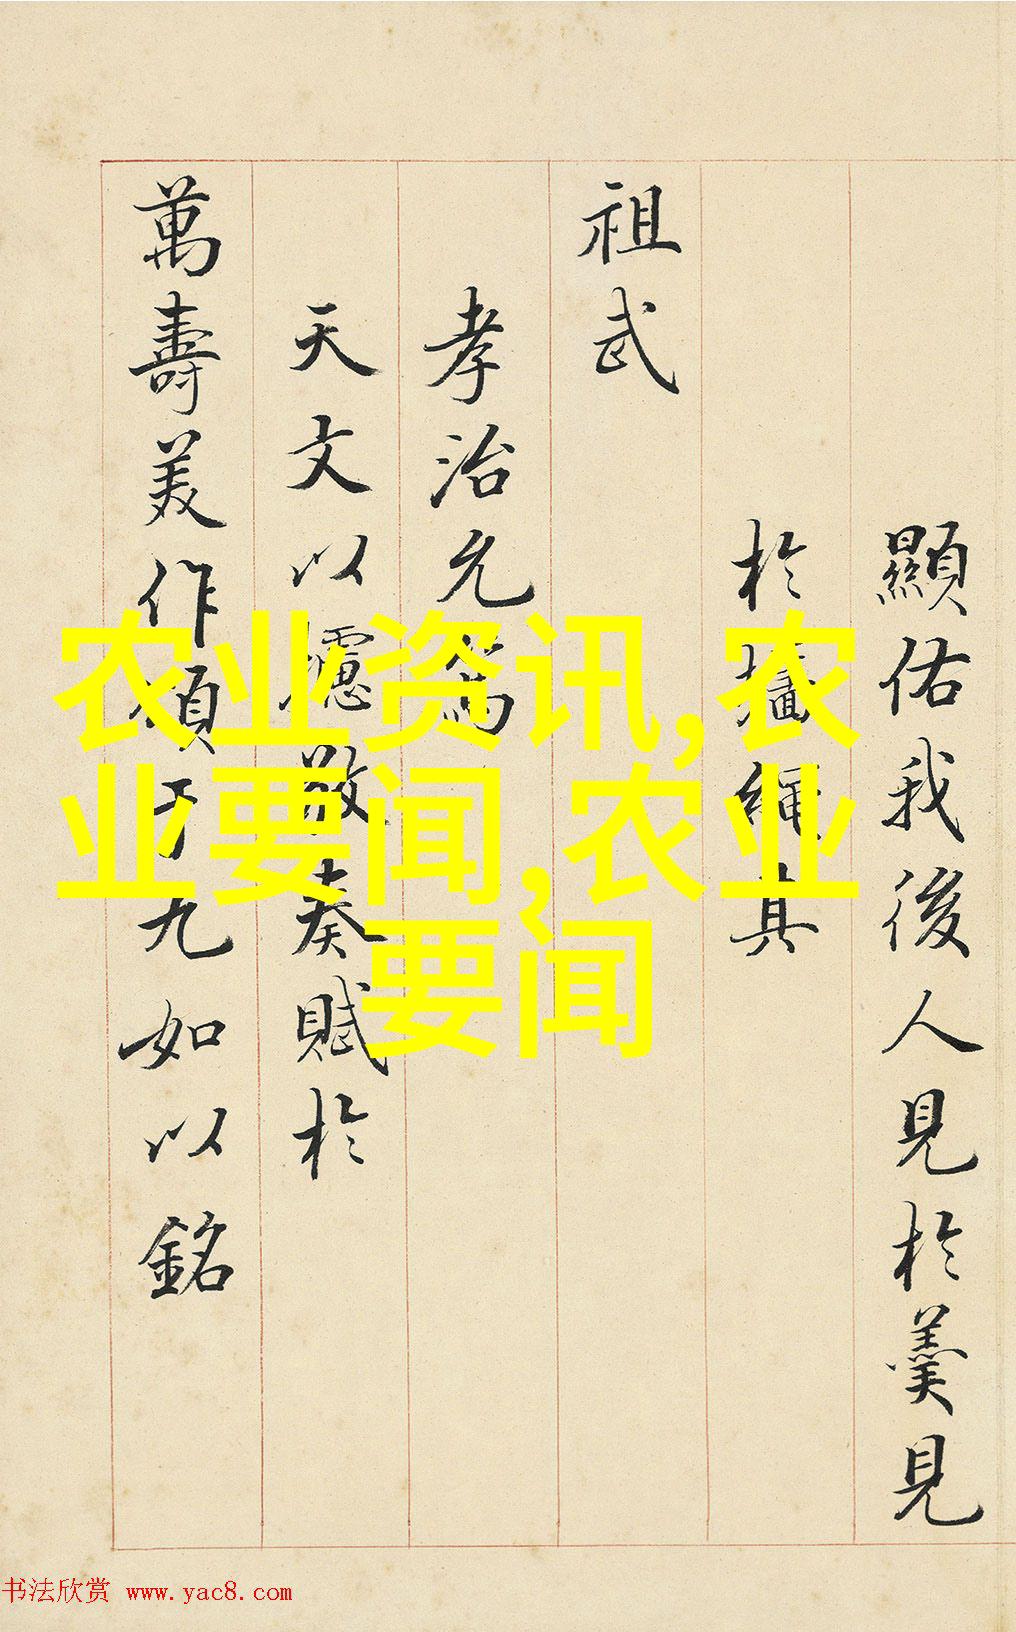 顯佑我後人見於羹見
於繩其
祖武
孝治允
天文以攄奏賦於
萬壽美作頌于九如以銘
农业资讯,农
业要闻,农业
要闻
书法欣赏 www.yac8.com